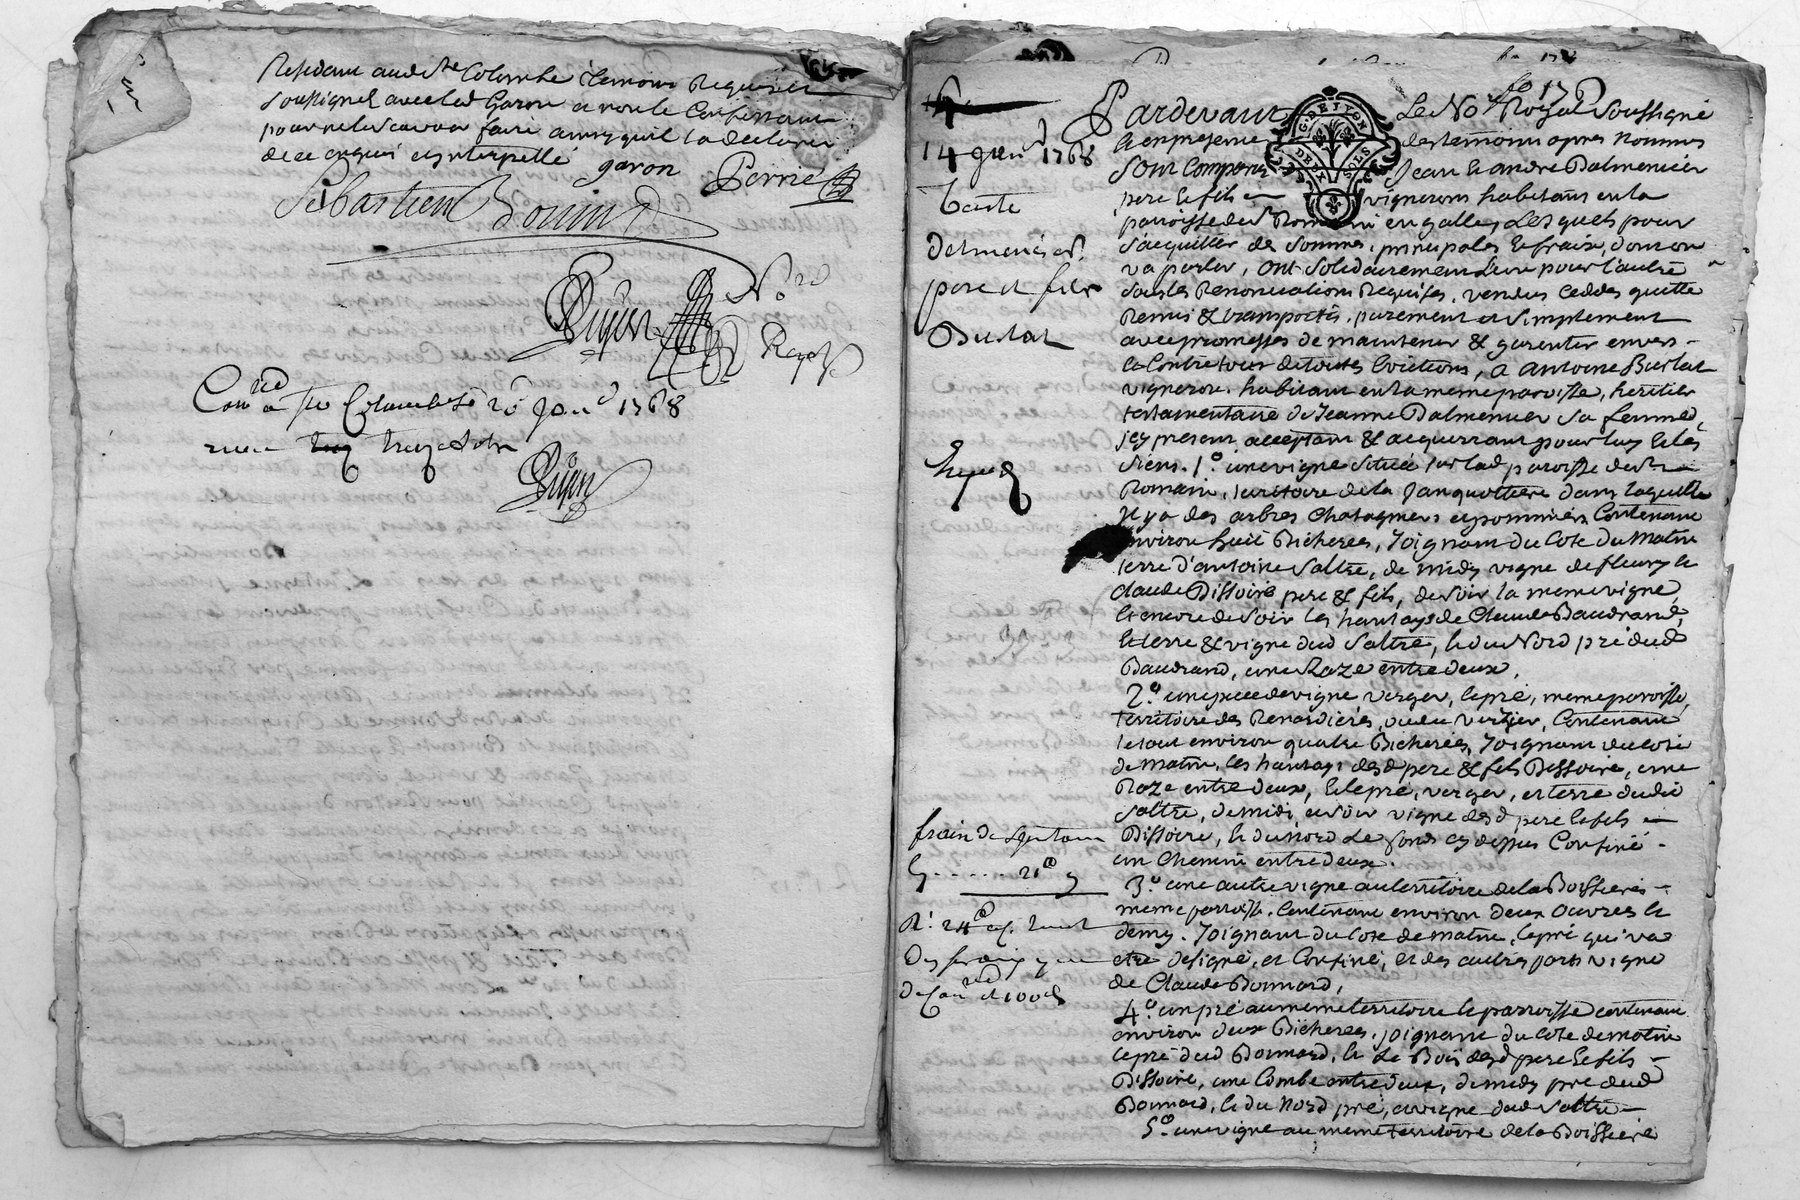 Residant aud Ste Colombe temoins Requis et
soussignés avec led Garon et non le Confessant
pour ne le scavoir faire ainsy quil la declaré
de ce enquis et interpellé garon Pernié
Sebastien Bonin
Dujon No. Ral
Con.lé a Ste Colombe le 26 Janer 1768
recu treize sols
Dujon
14 janr 1768
Vente
Dalmenciés
pere et fils
Burlat
Exped
frais de quittance
cy ...... 21# 9
de Conlé et 100d
G. DE LYON
DEUX SOLS
Pardevant Le Nore Royal soussigné
et en presence des temoins apres nommés
sont Comparus Jean et andré Dalmencier
pere et fils vignerons habitans en la
parroisse de St Romain en galles, Lesquels pour
s'acquitter des sommes principales et frais, dont on
va parler, ont solidairement l'un pour l'autre
sous les Renonciations Requises, vendus cedés quitté
Remis & transportés, purement et simplement
avec promesses de maintenir & garentir envers
et Contre tous de toutes Evictions, a antoine Burlat
vigneron habitant en la meme paroisse, heritier
testamentaire de Jeanne Dalmencier sa femme,
jcy present, acceptant & acquerrant pour luy et les
siens. 1o une vigne située sur lad paroisse de St
Romain, territoire de la Janquottiere dans laquelle
jl y a des arbres Chatagniers et pommiers Contenant
environ huit Bicherées, Joignant du Coté du Matin
terre d'antoine saltre, de midy vigne de fleury et
claude Dissoire pere & fils, de soir la meme vigne
et encore de soir les hautays de Claude Baudrand,
et terre & vigne dud saltre, et du Nord pré dud
Baudrand, une Raze entre deux.
2o une piece de vigne, verger, et pré, meme paroisse,
territoire des Renardieres, ou du verger, Contenant
le tout environ quatre Bicherées, Joignant du coté
de matin, les hautays desd pere & fils Dissoire, une
Raze entre deux, et le pré, verger, et terre dudit
saltre, de midi, et soir vigne desd pere et fils
Dissoire, et du Nord Le fonds cy dessus Confiné
un Chemin entre deux.
3o une autre vigne au territoire de la Boissiere
meme parroisse, Contenant environ deux ouvrés et
demy. Joignant du Coté de matin, le pré qui va
etre designé, et Confiné, et des autres parts vigne
de Claude Bonnard,
4o un pré au meme territoire et parroisse contenant
environ deux Bicherés, joignant du Coté de matin
le pré dud Bonnard, et Le Bois desd pere et fils
Dissoire, une Combe entre deux, de midy pré dud
Bonnard, et du Nord pré, et vigne dud saltre
5o une vigne au meme territoire de la Boissiere